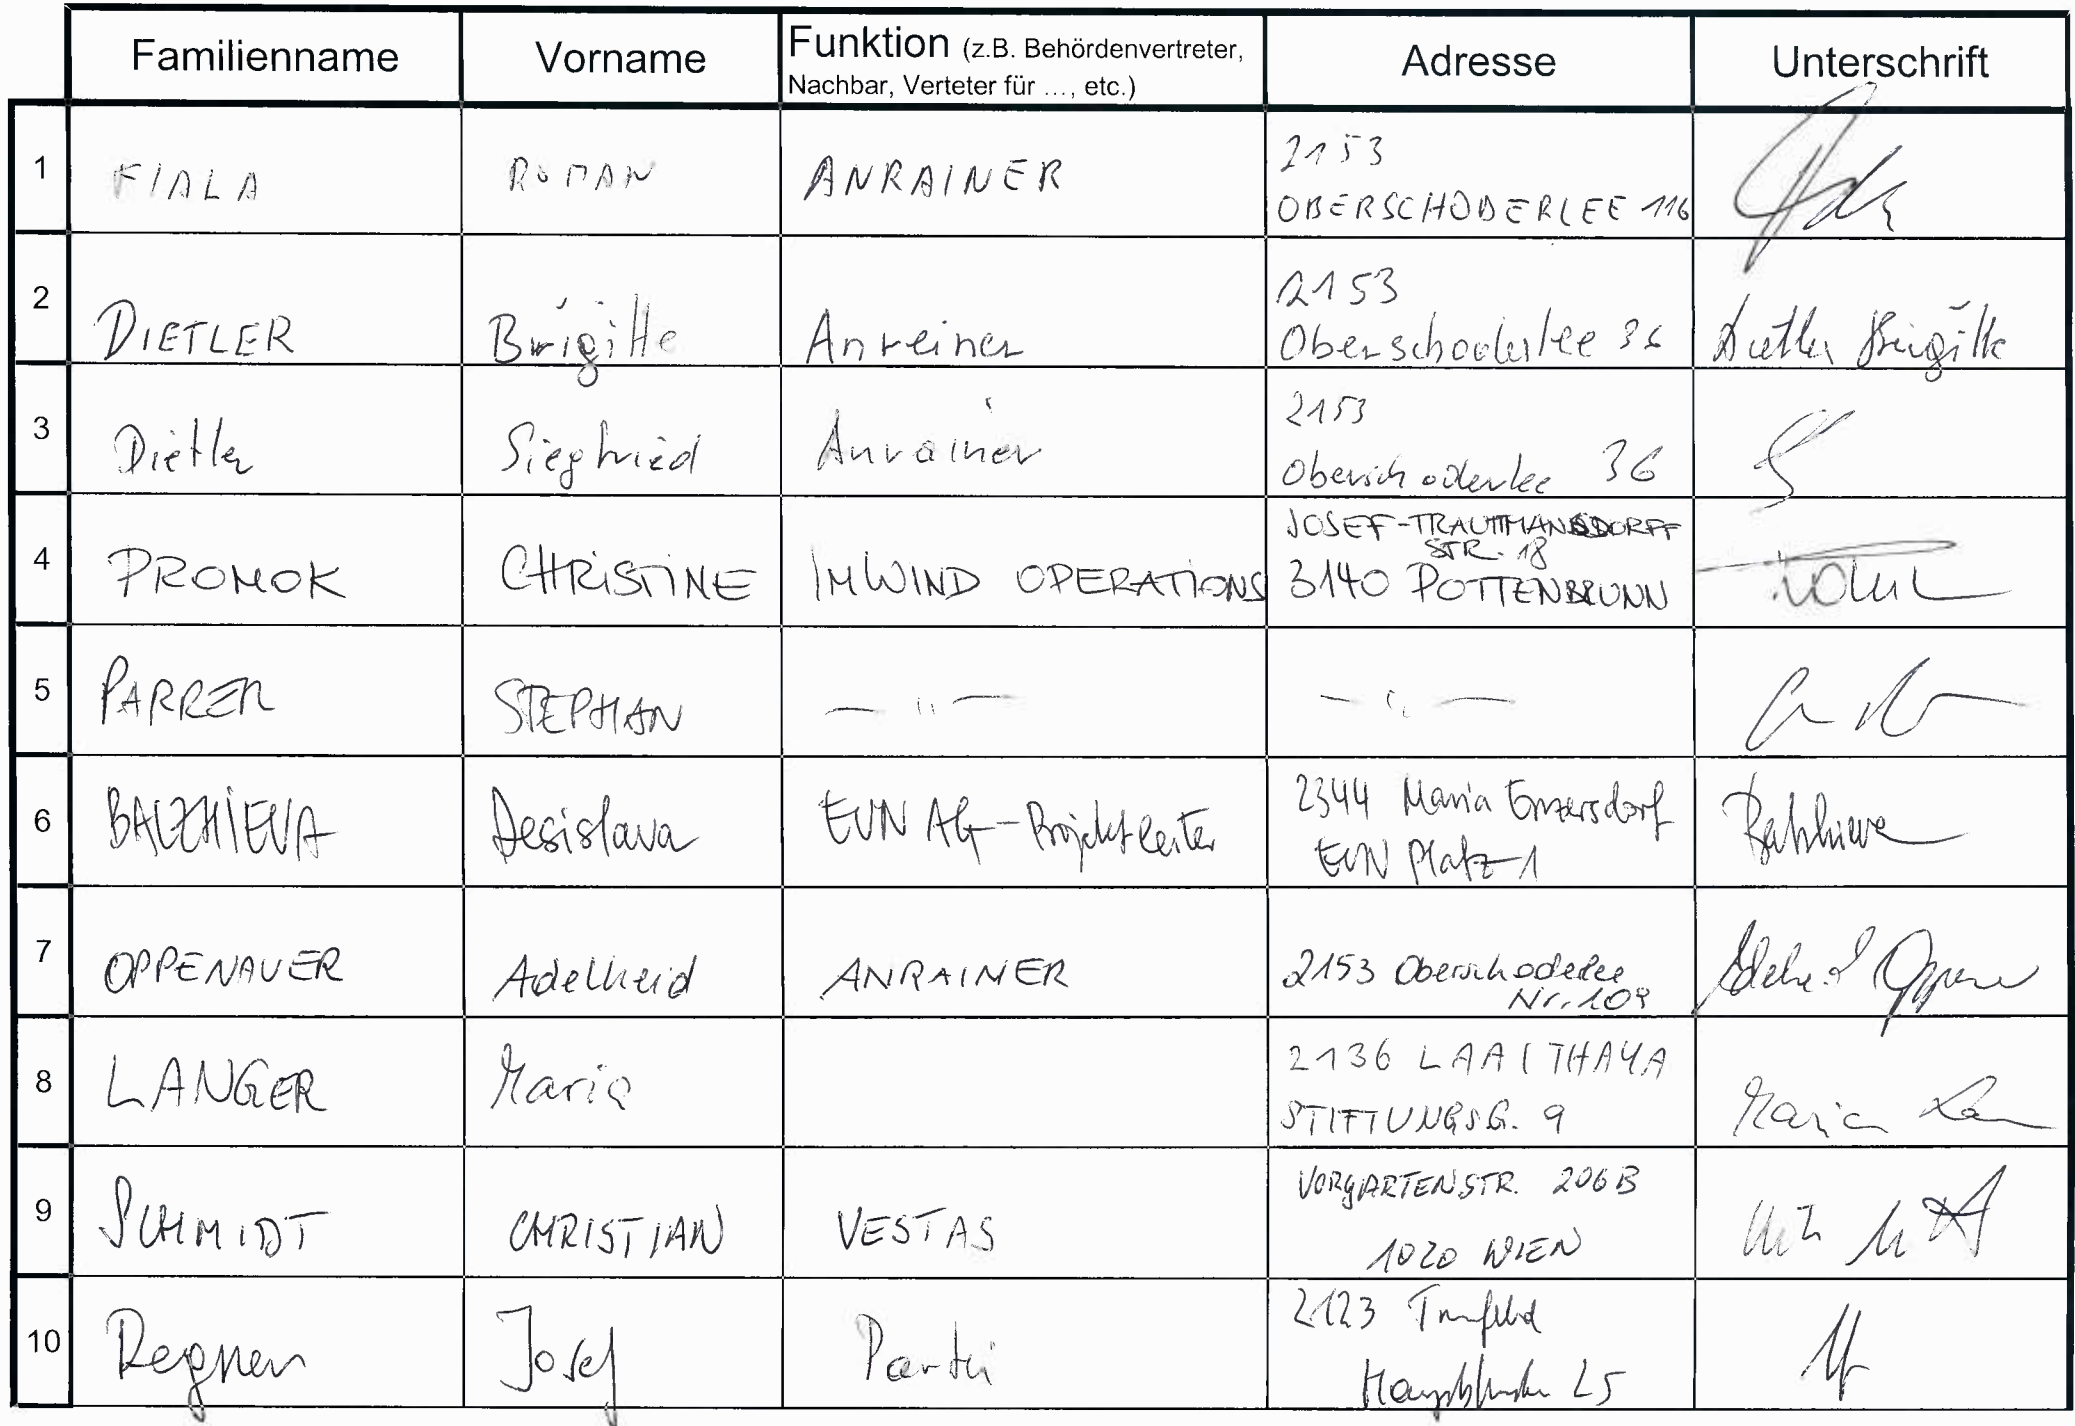 Familienname Vorname Funktion (z.B. Behördenvertreter, Adresse Unterschrift
Nachbar, Verteter für ..., etc.)
1 FIALA ROMAN ANRAINER 2153
OBERSCHODERLEE 116
2 DIETLER Brigitte Anreiner 2153
Oberschoderlee 36 Dietler Brigitte
3 Dietler Siegfried Anrainer 2153
Oberschoderlee 36
4 PROMOK CHRISTINE IMWIND OPERATIONS JOSEF-TRAUTTMANSDORFF
STR. 18
3140 POTTENBRUNN
5 PARRER STEPHAN — " — — " —
6 BALZHIEVA Desislava EVN AG - Projektleiter 2344 Maria Enzersdorf
EVN Platz 1 Balzhieva
7 OPPENAUER Adelheid ANRAINER 2153 Oberschoderlee
Nr. 109 Adelheid
8 LANGER Maria 2136 LAA / THAYA
STIFTUNGSG. 9 Maria
9 SCHMIDT CHRISTIAN VESTAS VORGARTENSTR. 206B
1020 WIEN
10 Regner Josef Partei 2123
Hauptstraße 25